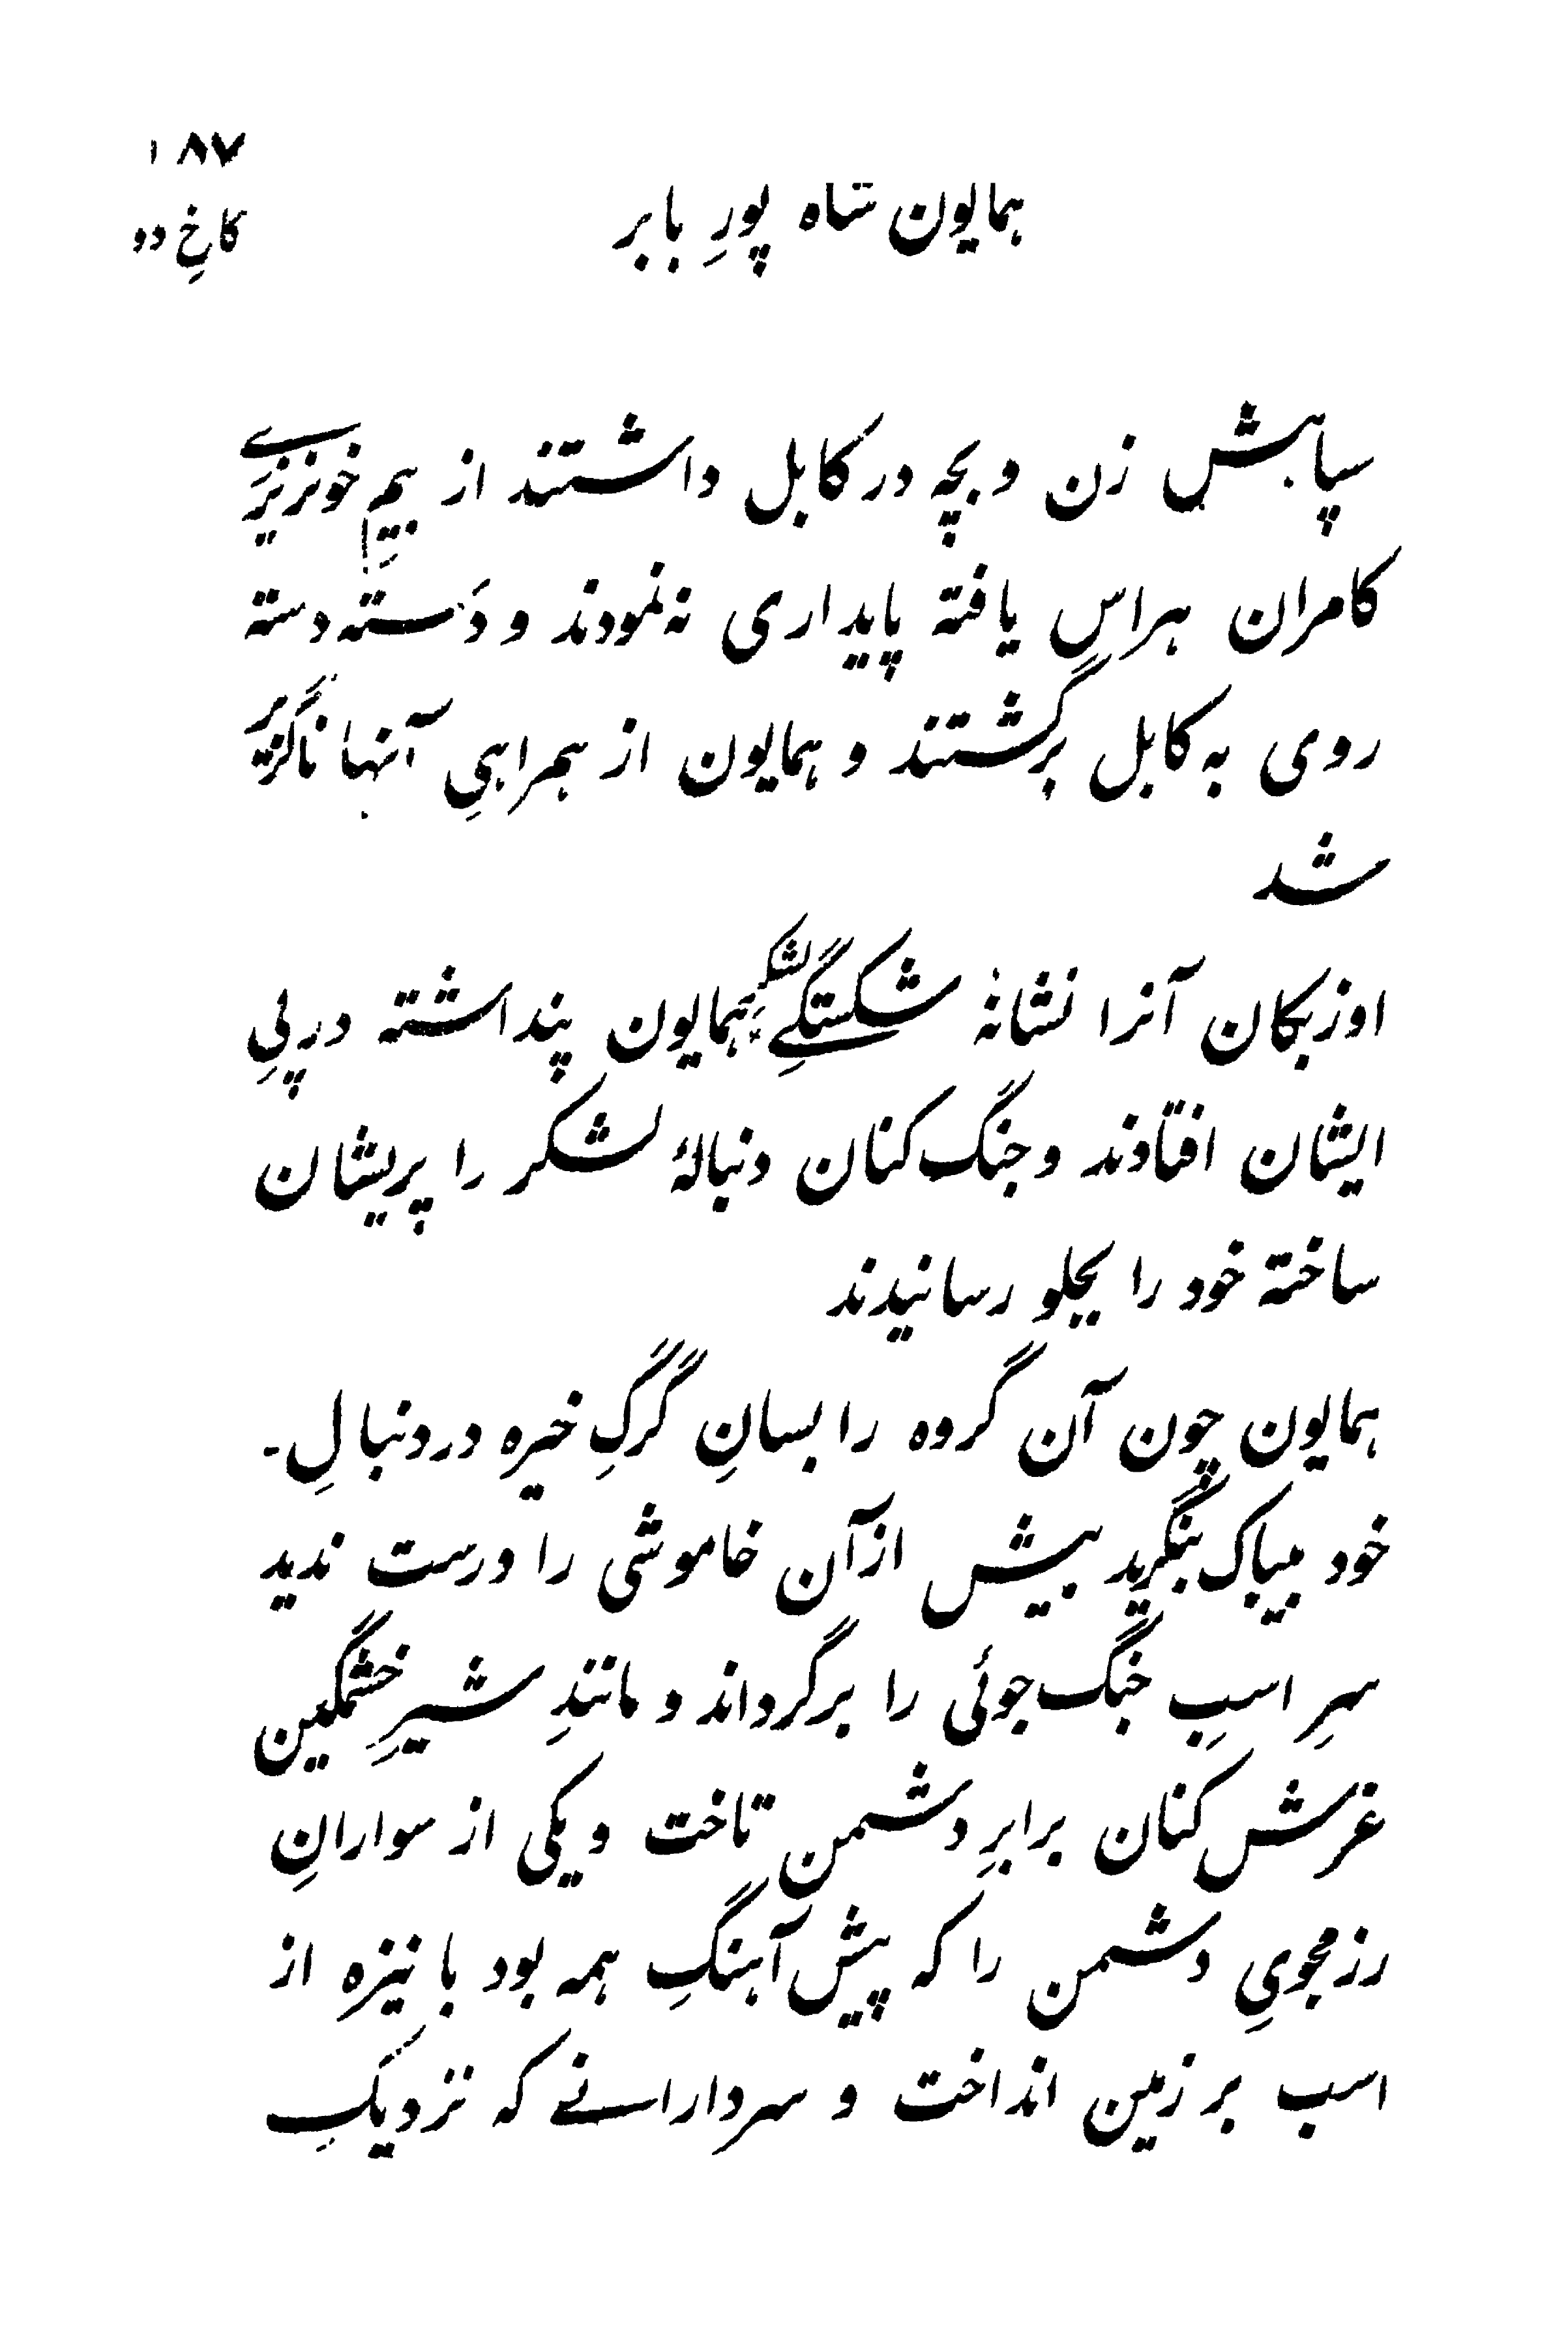 ۱۸۷
همایون شاه پورِ بابر
کاخِ دو
سپاهش زن و بچه در کابل داشتند از بیمِ خونریزیِ
کامران هراس یافته پایداری نه نمودند و دَسته دسته
روی به کابل برگشتند و همایون از همراهیِ آنها ناگزیر
شد
اوزبکان آنرا نشانهٔ شکستگیِ لشکرِ همایون پنداشته در پیِ
ایشان افتادند و جنگ کنان دنبالهٔ لشکر را پریشان
ساخته خود را بجلو رسانیدند
همایون چون آن گروه را بسانِ گرگِ خیره در دنبالِ -
خود بیباک بنگرید بیش از آن خاموشی را درست ندید
سرِ اسبِ جنگ جوئی را برگرداند و مانندِ شیرِ خشمگین
غرش کنان برابرِ دشمن تاخت و یکی از سوارانِ
رزمجویِ دشمن را که پیش آهنگِ همه بود با نیزه از
اسب بر زمین انداخت و سردارانے که نزدیکِ